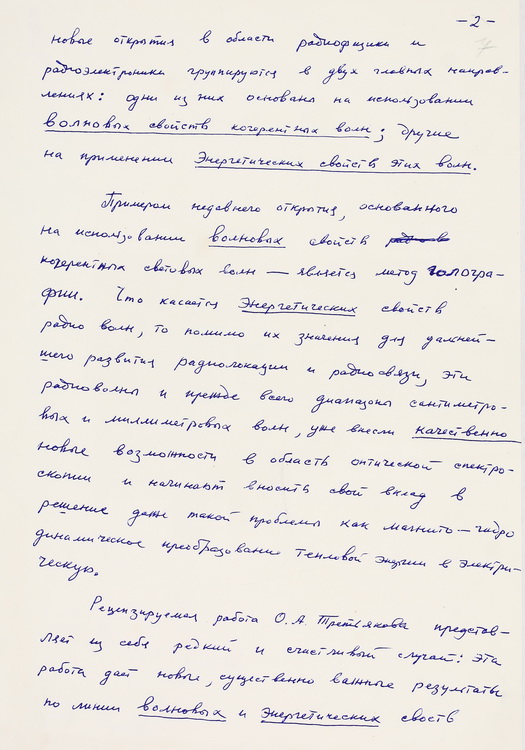 -2-
7
новые открытия в области радиофизики и
радиоэлектроники группируются в двух главных направ-
лениях: одни из них основаны на использовании
волновых свойств когерентных волн; другие
на применении энергетических свойств этих волн.
Примером недавнего открытия, основанного
на использовании волновых свойств
когерентных световых волн — является метод гологра-
фии. Что касается энергетических свойств
радио волн, то помимо их значения для дальней-
шего развития радиолокации и радиосвязи, эти
радиоволны и прежде всего диапазоны сантиметро-
вых и миллиметровых волн, уже внесли качественно
новые возможности в область оптической спектро-
скопии и начинают вносить свой вклад в
решение даже такой проблемы как магнито-гидро
динамическое преобразование тепловой энергии в электри-
ческую.
Рецензируемая работа О.А. Третьякова представ-
ляет из себя редкий и счастливый случай: эта
работа даёт новые, существенно важные результаты
по линии волновых и энергетических свойств